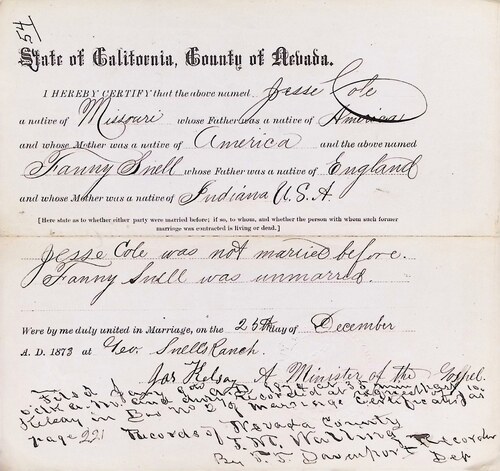 54
State of California, County of Nevada.
I HEREBY CERTIFY that the above named Jesse Cole
a native of Missouri whose Father was a native of America
and whose Mother was a native of America and the above named
Fanny Snell whose Father was a native of England
and whose Mother was a native of Indiana U.S.A.
[Here state as to whether either party were married before; if so, to whom, and whether the person with whom such former
marriage was contracted is living or dead.]
Jesse Cole was not married before.
Fanny Snell was unmarred.
Were by me duly united in Marriage, on the 25th day of December
A. D. 1873 at Geo. Snells Ranch.
Jas Kelsay A Minister of the Gospel.
Filed
o'clk A.M. and duly Recorded at Request Jas
Kelsay in Book No 2 of Marriage Certificates
page 221 Records of Nevada County
Recorder
By T. T. Davenport Dep